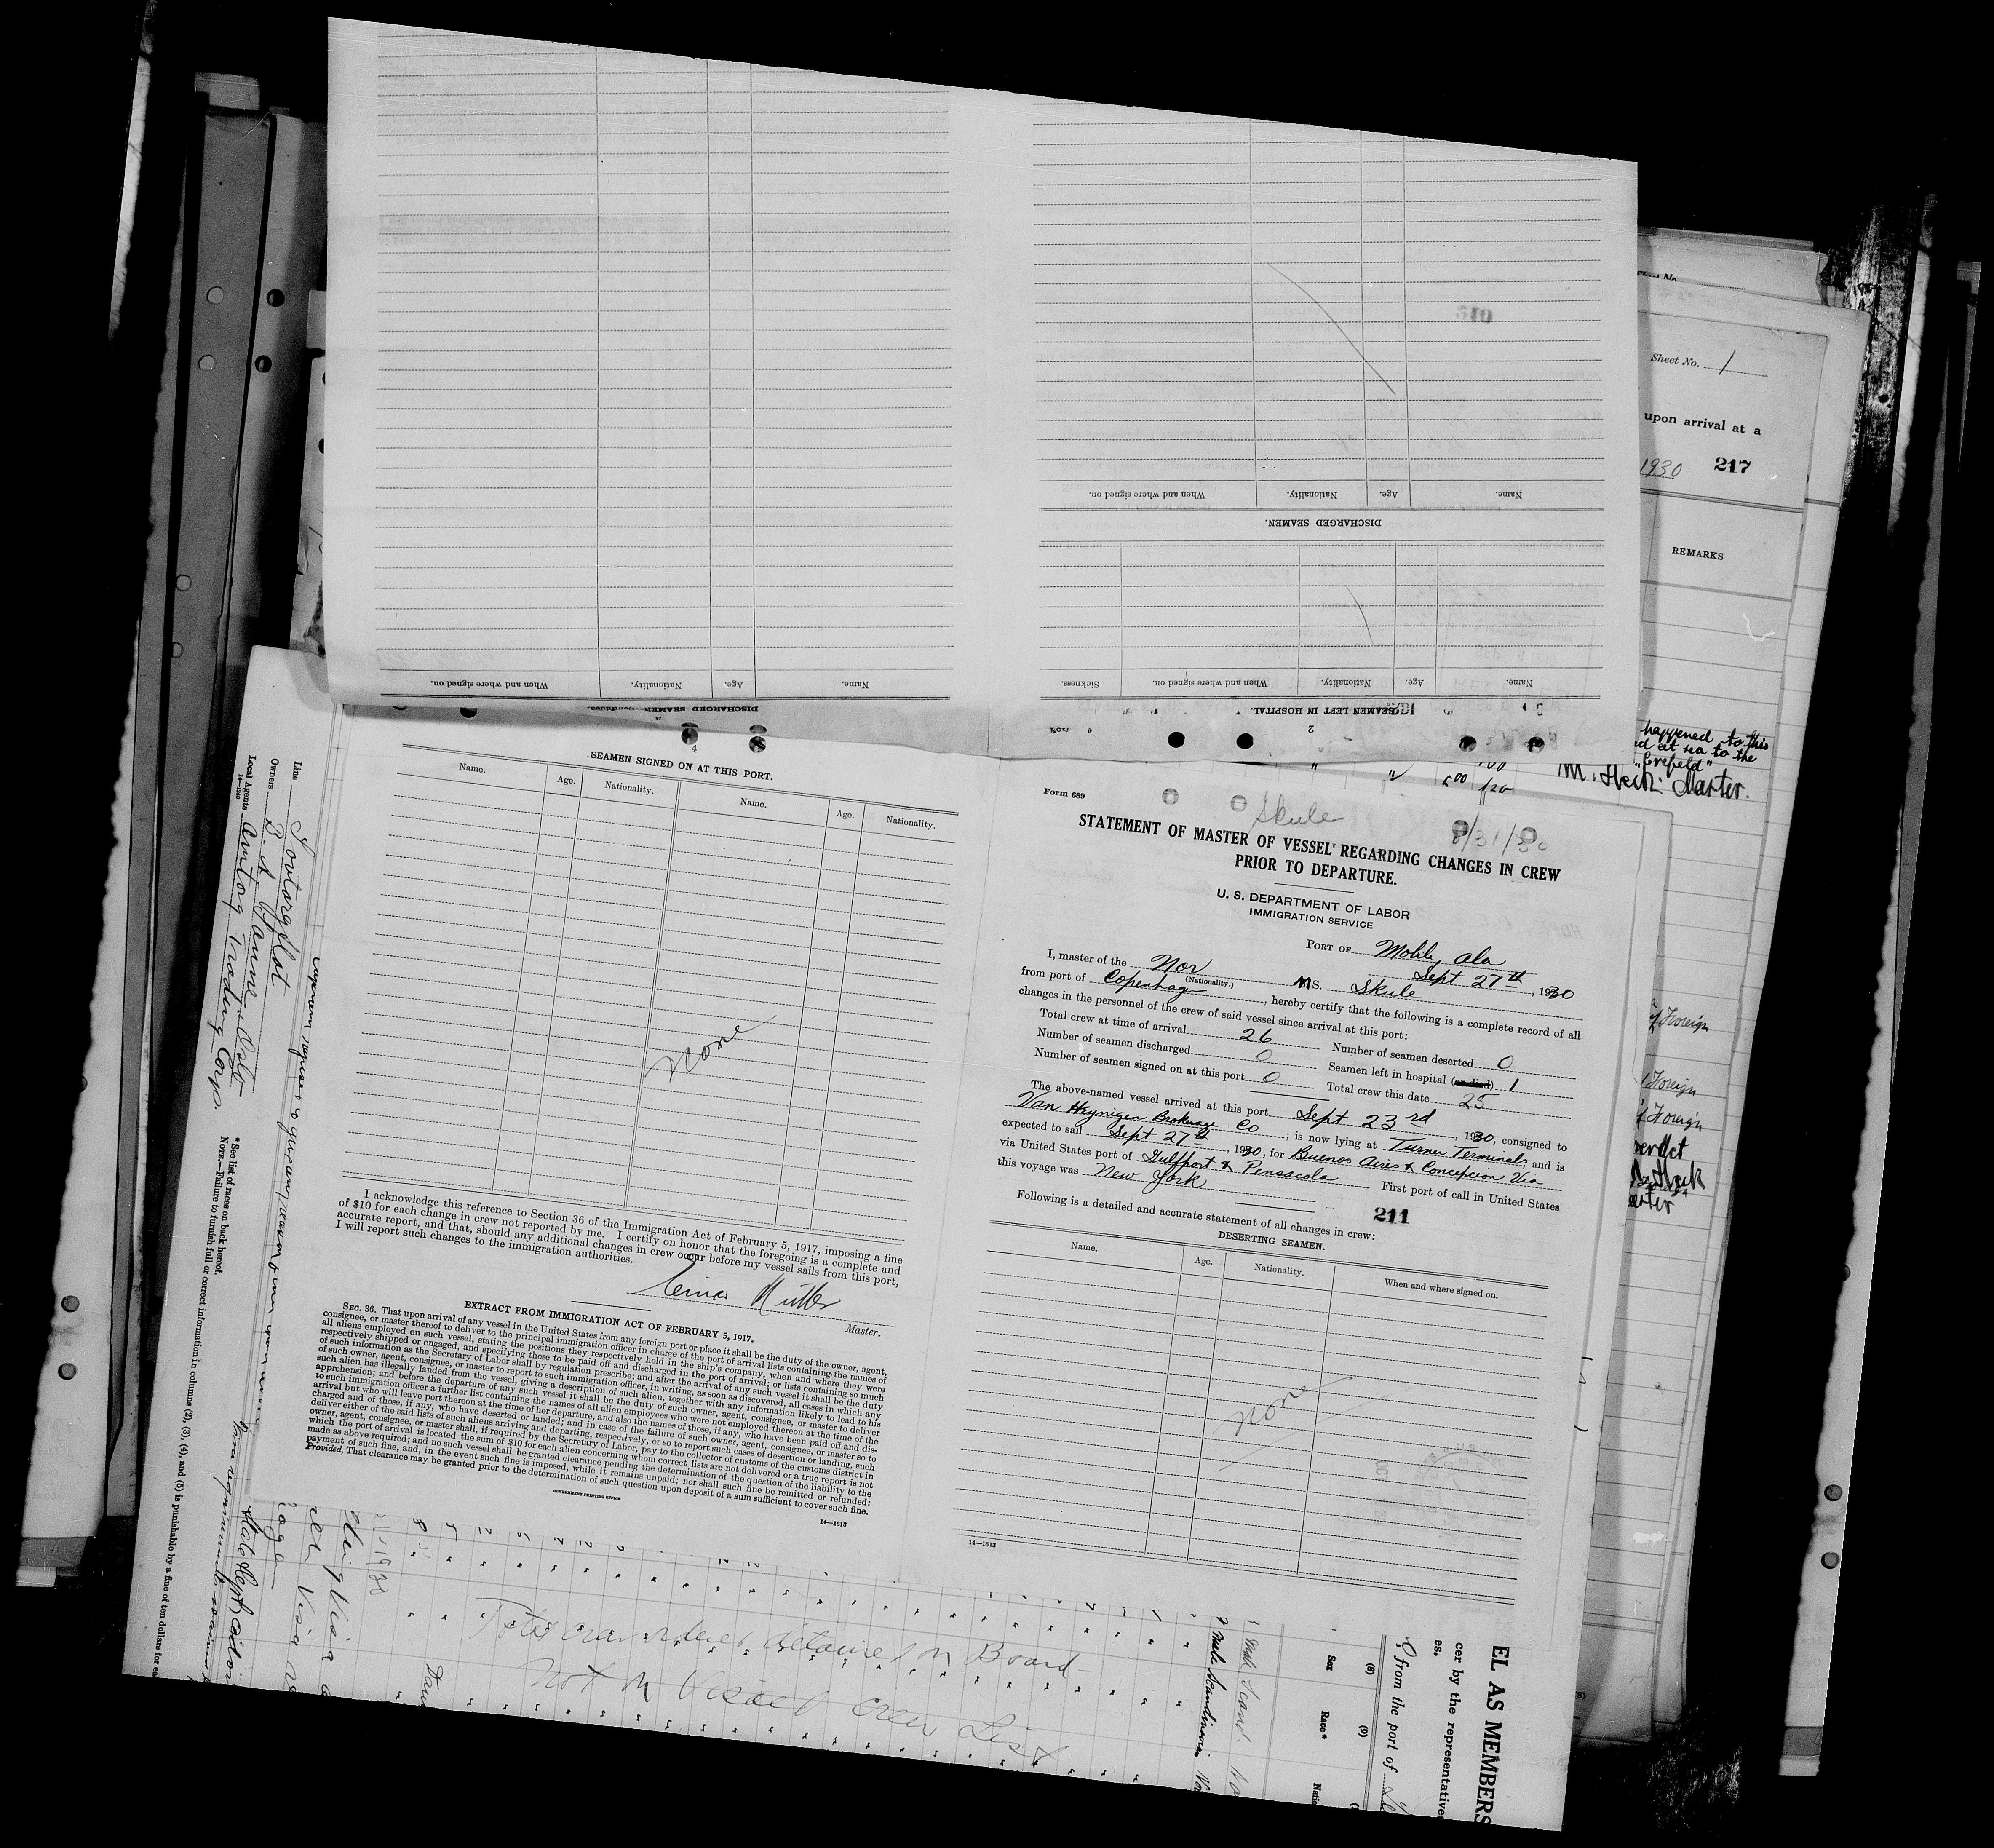 510
Name.
Age.
Nationality.
When and where signed on.
DISCHARGED SEAMEN.
Name.
Age.
Nationality.
When and where signed on.
Sickness.
Name.
Age.
Nationality.
When and where signed on.
SEAMEN LEFT IN HOSPITAL.
2
DISCHARGED SEAMEN
Sheet No. 1
upon arrival at a
1930 217
REMARKS
happened to this
ed at sea to the
"Crefeld"
Master.
4
SEAMEN SIGNED ON AT THIS PORT.
Name. Age. Nationality. Name. Age. Nationality.
None
I acknowledge this reference to Section 36 of the Immigration Act of February 5, 1917, imposing a fine
of $10 for each change in crew not reported by me. I certify on honor that the foregoing is a complete and
accurate report, and that, should any additional changes in crew occur before my vessel sails from this port,
I will report such changes to the immigration authorities.
Master.
EXTRACT FROM IMMIGRATION ACT OF FEBRUARY 5, 1917.
SEC. 36. That upon arrival of any vessel in the United States from any foreign port or place it shall be the duty of the owner, agent,
consignee, or master thereof to deliver to the principal immigration officer in charge of the port of arrival lists containing the names of
all aliens employed on such vessel, stating the positions they respectively hold in the ship's company, when and where they were
respectively shipped or engaged, and specifying those to be paid off and discharged in the port of arrival; or lists containing so much
of such information as the Secretary of Labor shall by regulation prescribe; and after the arrival of any such vessel it shall be the duty
of such owner, agent, consignee, or master to report to such immigration officer, in writing, as soon as discovered, all cases in which any
such alien has illegally landed from the vessel, giving a description of such alien, together with any information likely to lead to his
apprehension; and before the departure of any such vessel it shall be the duty of such owner, agent, consignee, or master to deliver
to such immigration officer a further list containing the names of all alien employees who were not employed thereon at the time of the
arrival but who will leave port thereon at the time of her departure, and also the names of those, if any, who have been paid off and dis-
charged and of those, if any, who have deserted or landed; and in case of the failure of such owner, agent, consignee, or master so to
deliver either of the said lists of such aliens arriving and departing, respectively, or so to report such cases of desertion or landing, such
owner, agent, consignee, or master shall, if required by the Secretary of Labor, pay to the collector of customs of the customs district in
which the port of arrival is located the sum of $10 for each alien concerning whom correct lists are not delivered or a true report is not
made as above required; and no such vessel shall be granted clearance pending the determination of the question of the liability to the
payment of such fine, and, in the event such fine is imposed, while it remains unpaid; nor shall such fine be remitted or refunded:
Provided, That clearance may be granted prior to the determination of such question upon deposit of a sum sufficient to cover such fine.
GOVERNMENT PRINTING OFFICE
14—1613
Form 689
Skule
8/31/30
STATEMENT OF MASTER OF VESSEL REGARDING CHANGES IN CREW
PRIOR TO DEPARTURE.
U. S. DEPARTMENT OF LABOR
IMMIGRATION SERVICE
PORT OF Mobile, Ala
Sept 27th, 1930
I, master of the Nor (Nationality.) M S. Skule
from port of Copenhagen, hereby certify that the following is a complete record of all
changes in the personnel of the crew of said vessel since arrival at this port:
Total crew at time of arrival 26 Number of seamen deserted 0
Number of seamen discharged 0 Seamen left in hospital (or died) 1
Number of seamen signed on at this port 0 Total crew this date 25
The above-named vessel arrived at this port Sept 23rd, 1930, consigned to
Van Heynigen Brokerage Co; is now lying at Turner Terminals and is
expected to sail Sept 27th, 1930, for Buenos Aires & Concepcion Via
via United States port of Gulfport & Pensacola First port of call in United States
this voyage was New York
211
Following is a detailed and accurate statement of all changes in crew:
DESERTING SEAMEN.
Name. Age. Nationality. When and where signed on.
None
14—1613
Line Sovtorgflot
Owners
Local Agents Amtorg Trading Corp.
14—1240
* See list of races on back hereof.
NOTE.—Failure to furnish full or correct information in columns (2), (3), (4), and (5) is punishable by a fine of ten dollars for
crew ordered detained on Board
Not on Visaed Crew List
EL AS MEMBERS
cer by the representatives
from the port of
(8)
Sex
(9)
Race*
Male Scand
Male Scandinavian
Foreign
Foreign
Foreign